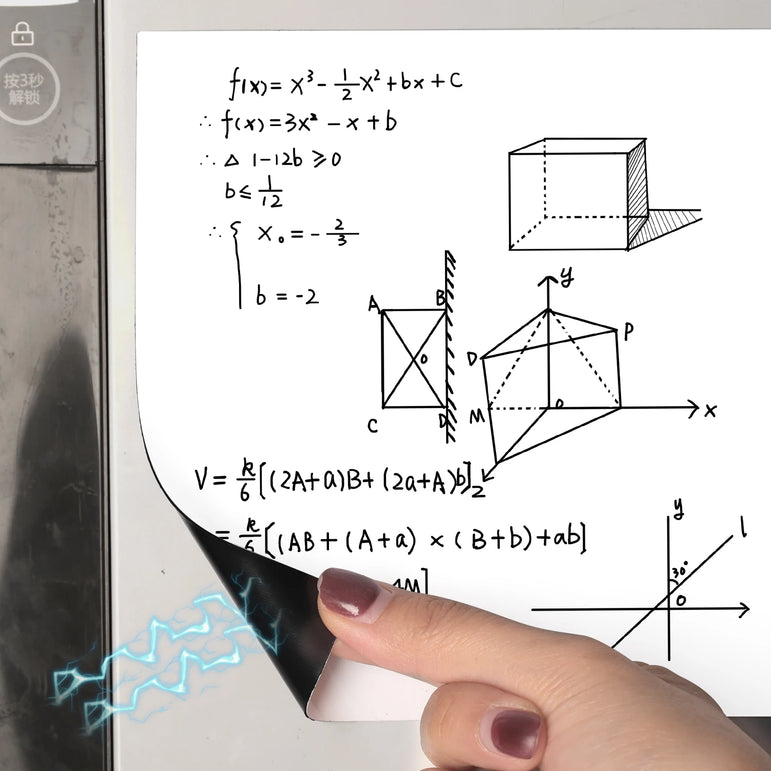 按3秒
解锁
f(x)= x³ - 1/2 x² + bx + C
∴ f(x) = 3x² - x + b
∴ △ 1-12b ≥ 0
b ≤ 1/12
∴ { x₀ = - 2/3
b = -2
A B
O
C D
y
P
D
M O x
z
V = k/6 [(2A+a)B + (2a+A)b]
= k/6 [(AB + (A+a) × (B+b) + ab]
4M]
y
l
30°
O